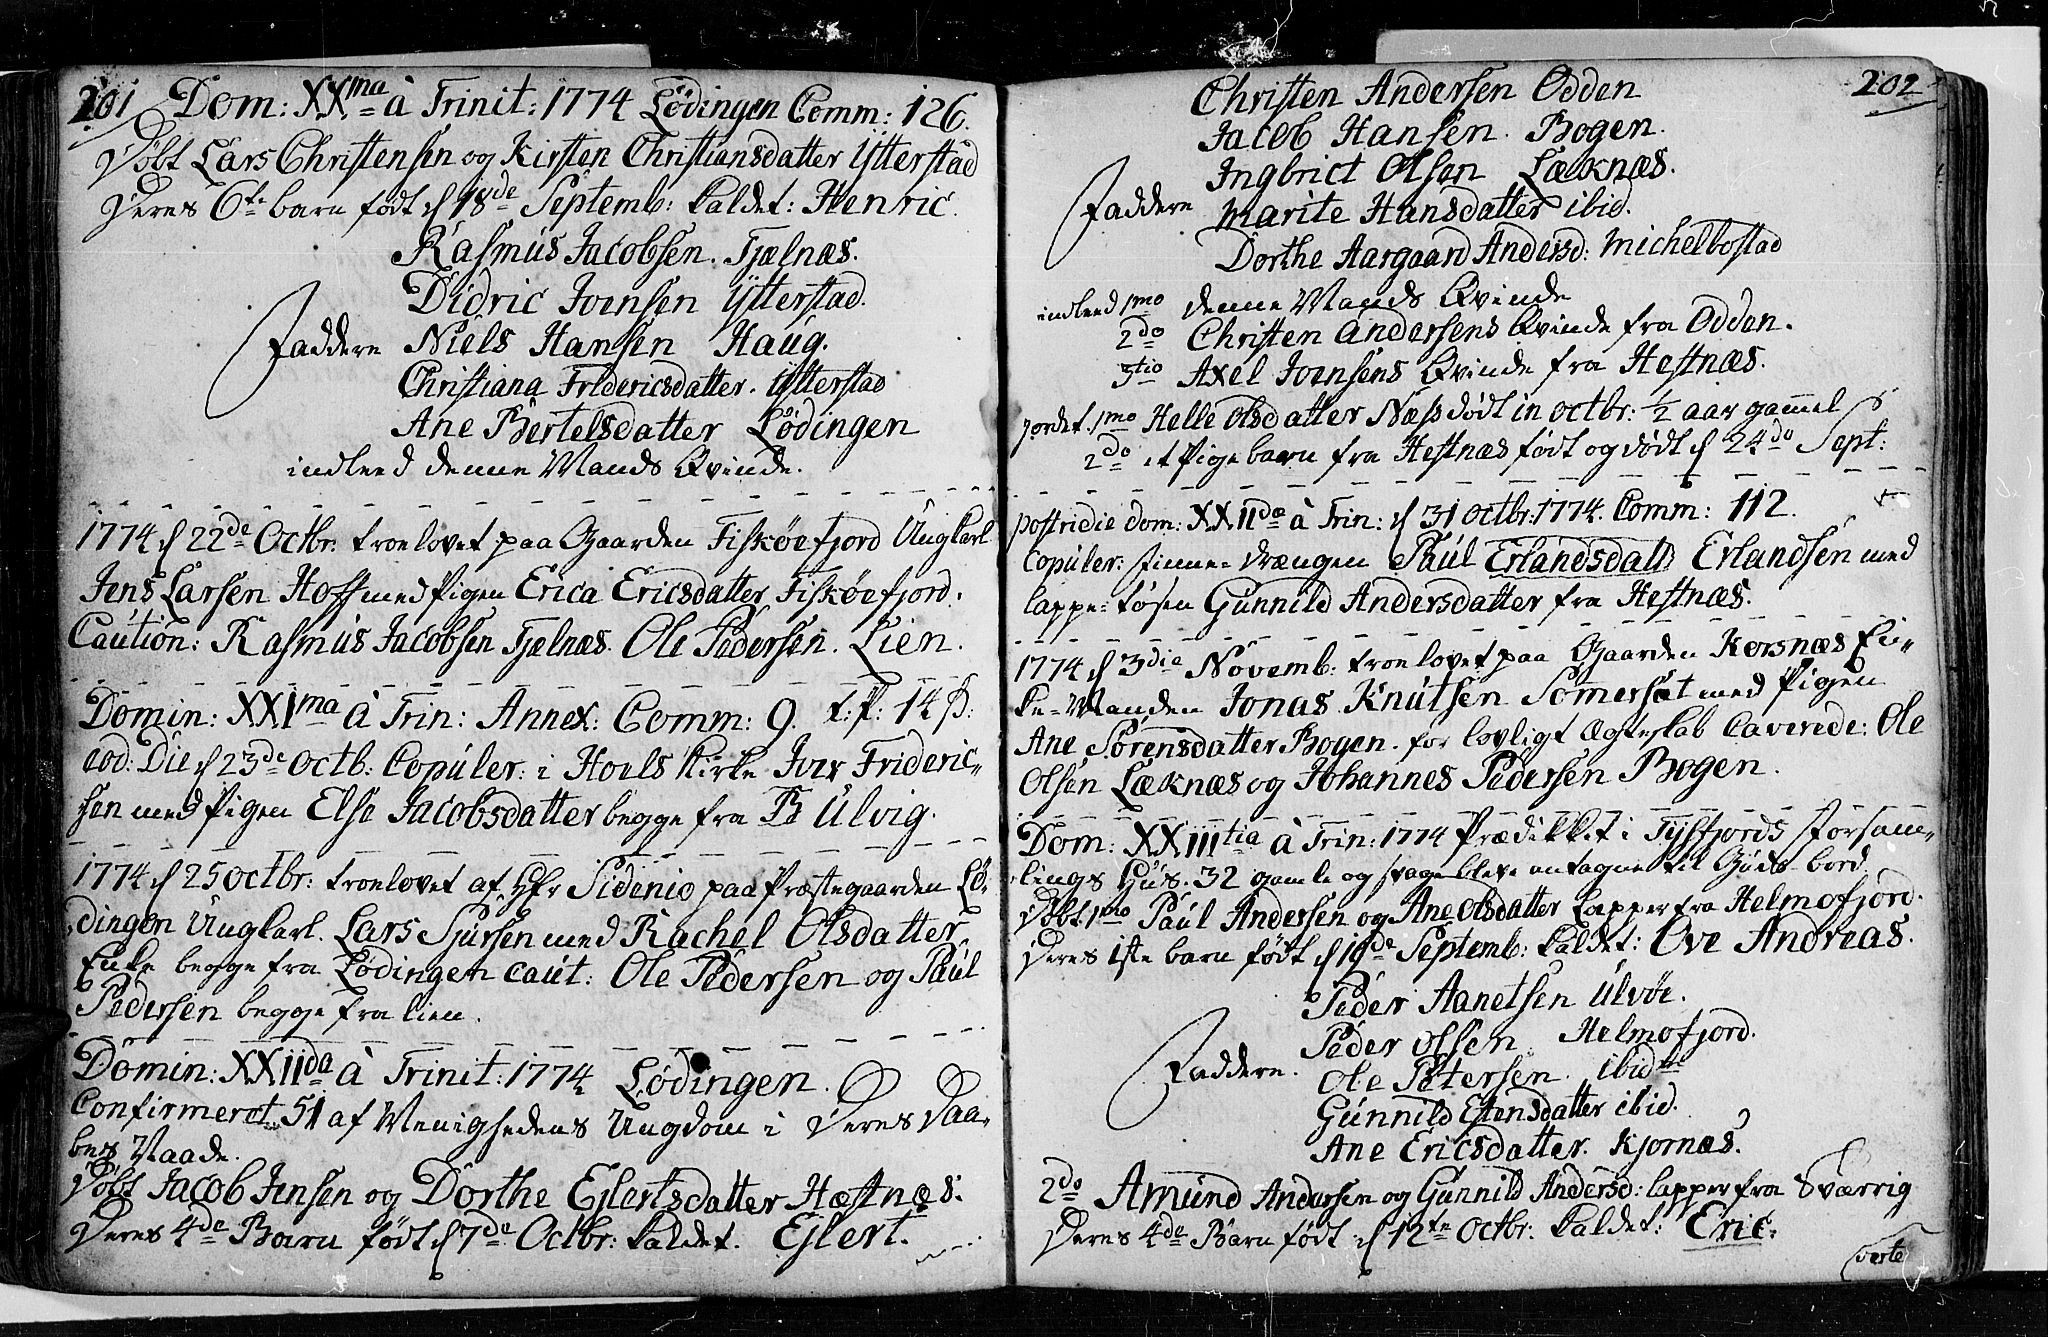 201 Dom: XXma à Trinit: 1774 Lödingen Comm: 126.
Döbt Lars Christensen og Kirsten Christiansdatter Ytterstad
Deres 6te barn født d 18de Septemb: kaldet: Henric.
Rasmus Jacobsen. Fjælnæs.
Didric Joensen Ytterstad.
Faddere Niels Hansen Haug.
Christiana Fridericsdatter. Ytterstad
Ane Bertelsdatter Lödingen
indleed denne Mands Qvinde.
1774 d 22de Octbr: troelovet paa Gaarden Fiskøefjord Ungkarl
Jens Larsen Hoff med Pigen Erica Ericsdatter Fiskøefjord.
Caution: Rasmus Jacobsen Fjelnæs. Ole Pedersen. Lien.
Domin: XXIma à Trin: Annex: Comm: 9. t: p: 14 ß.
eod: Die d 23de Octb: Copuler: i Hoels Kirke Iver Frideric-
sen med Pigen Else Jacobsdatter begge fra Ulvig.
1774 d 25 Octbr: troelovet af Hr Sidenio paa Præstegaarden Lö-
dingen Ungkarl. Lars Sjursen med Rachel Olsdatter
Enke begge fra Lödingen Caut: Ole Pedersen og Paul
Pedersen begge fra Lien.
Domin: XXIIda à Trinit: 1774 Lödingen.
Confirmeret 51 af Menighedens Ungdom i Deres Daa-
bes Naade.
Döbt Jacob Jensen og Dorthe Ejlertsdatter Hæstnæs.
Deres 4de Barn født d 7de Octbr: kaldet. Ejlert.
202
Christen Andersen Odden
Jacob Hansen. Bogen.
Ingbrict Olsen Læknæs.
Faddere Marite Hansdatter ibid.
Dorthe Aargaard Andersd: Michelbostad
indleed 1mo denne Mands Qvinde
2do Christen Andersens Qvinde fra Odden.
3tio Axel Joensens Qvinde fra Hestnæs.
jordet. 1mo Helle Olsdatter Næss død in octbr: ½ aar gammel
2do et Pigebarn fra Hestnæs født og død d 24do Sept:
postridie dom: XXIIdo à Trin: d 31 Octbr: 1774. Comm: 112.
Copuler: Finne-drængen Paul Erlandsdatt Erlandsen med
lappe-tøsen Gunnild Andersdatter fra Hestnæs.
1774 d 3die Novemb: troelovet paa Gaarden Korsnæs En-
ke-Manden Jonas Knutsen Somerset med Pigen
Ane Sörensdatter Bogen. for lovligt Ægteskab Caverede: Ole
Olsen Læknæs og Johannes Pedersen Bogen.
Dom: XXIIItia à Trin: 1774 Prædikket i Tysfjords Forsam-
lings Hus. 32 gamle og svage bleve antagne til Guds bord.
Döbt 1mo Paul Andersen og Ane Olsdatter Lapper fra Helmofjord.
Deres 1ste barn født d 19de Septemb: kaldet: Ove Andreas.
Peder Aanetsen Ulvöe.
Peder Olsen Helmofjord.
Faddere. Ole Petersen. ibid
Gunnild Estensdatter ibid.
Ane Ericsdatter. Kjornæs.
2do Amund Andersen og Gunnild Andersd: lapper fra Sværrig
Deres 4de Barn født d 12te Octbr: kaldet: Eric.
verte